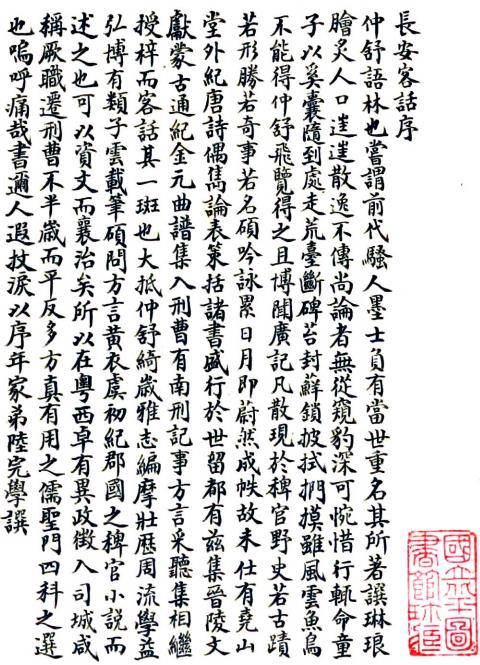 長安客話序
仲舒語林也嘗謂前代騷人墨士負有當世重名其所著譔琳琅
膾炙人口散逸不傳尚論者無從窺豹深可惋惜行輒命童
子以奚囊隨到處走荒臺斷碑苔封蘚鎖披拭捫摸雖風雲魚鳥
不能得仲舒飛覽得之且博聞廣記凡散現於稗官野史若古蹟
若形勝若奇事若名碩吟詠累日月即蔚然成帙故未仕有堯山
堂外紀唐詩偶雋論表策括諸書盛行於世留都有茲集晉陵文
獻蒙古通紀金元曲譜集入刑曹有南刑記事方言采聽集相繼
授梓而客話其一斑也大抵仲舒綺歲雅志編摩壯歷周流學益
弘博有類子雲載筆碩問方言黃衣虞初紀郡國之稗官小說而
述之也可以資文而襄治矣所以在粵西卓有異政徵入司城咸
稱厥職遷刑曹不半歲而平反多方真有用之儒聖門四科之選
也嗚呼痛哉書邇人遐抆淚以序年家弟陸完學譔